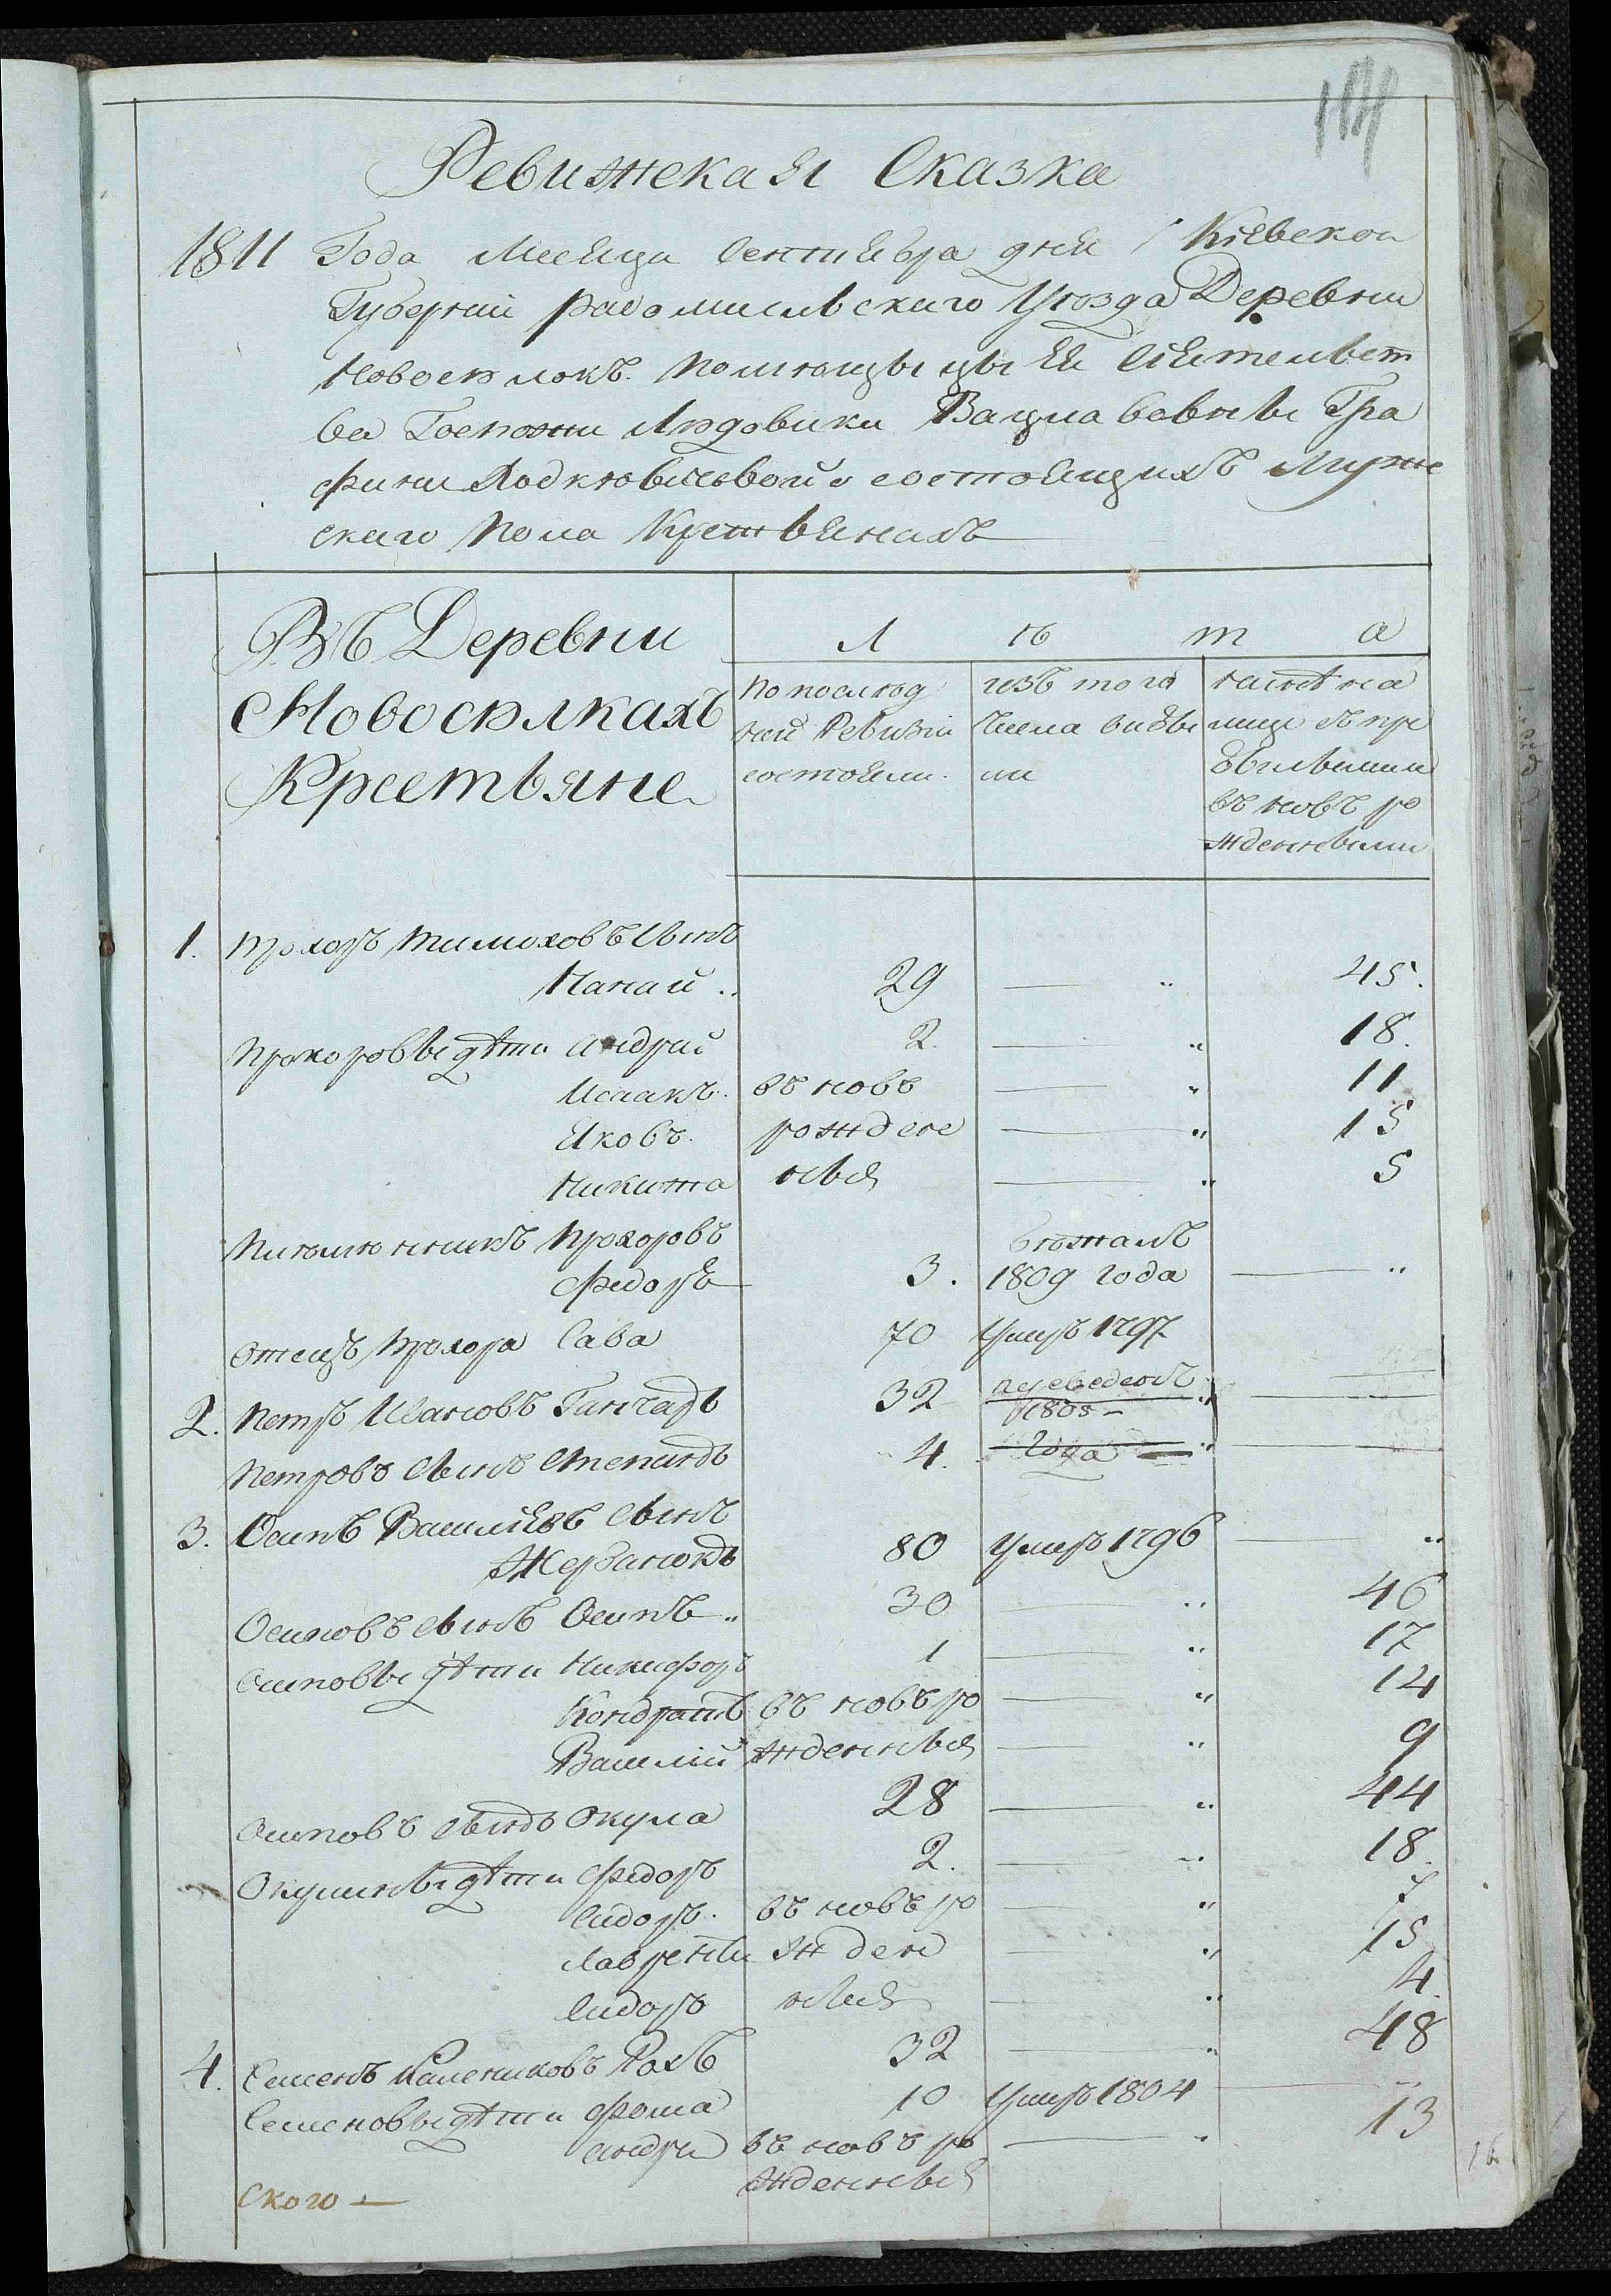 Ревижская Сказка
1811 Года Месяца Сентября дня 1 Кіевской
Губерній радомисльскаго Уѣзда Деревни
Новосѣлокъ. помѣщыцы Ея Сіятельст
ва Госпожи Людовики Вацлавовны Гра
фини Ходкѣвичовой о состоящихъ Муже
скаго Пола Крестьянахъ
Въ Деревни
Новосѣлкахъ
Крестьяне
Л ѣ т а
По послѣд
ней Ревизіи
состояли.
изъ того
числа выбы
ли
нынѣ на
лицо съ при
былыми
въ новъ ро
жденными
1. Прохоръ Тимоховъ Сынъ
Нанай .. 29 — „ 45.
Прохоровы дѣти Андрий 2. — „ 18.
Исаакъ. въ новъ — „ 11
Яковъ. рожден — „ 15
Никита ныя — „ 5
Племѣнникъ Прохоровъ бѣжалъ
Федоръ 3. 1809 года — „
Отецъ Прохора Сава 70 Умеръ 1797
2. Петръ Ивановъ Гончаръ 32 переведенъ — „ —
1805 –
Петровъ Сынъ Степанъ 4. Года — „ —
3. Осипъ Василіевъ Сынъ
80 Умеръ 1796 — „
Осиповъ Сынъ Осипъ „ 30 — „ 46
Осиповы дѣти Никифоръ 1 — „ 17
Кондратъ въ новъ ро — „ 14
Василій жденныя — „ 9
Осиповъ сынъ Окула 28 — „ 44
Окулины дѣти Федоръ 2. — „ 18.
Сидоръ. въ новъ ро — „ 7
Лавренти жден — „ 15
Сидоръ ныя — „ 4.
4. Семенъ Калениковъ 32 — „ 48
Семеновы дѣти Фома 10 Умеръ 1804 — „
Андри въ новъ ро — „ 13
жденныя
Ского —